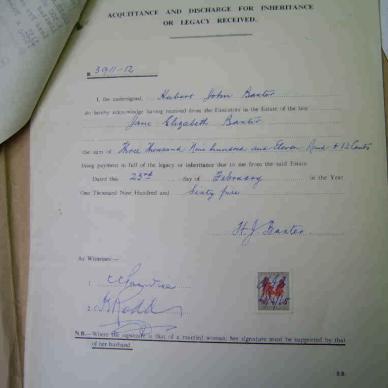 ACQUITTANCE AND DISCHARGE FOR INHERITANCE
OR LEGACY RECEIVED.
R 3911-12
I, the undersigned, Hubert John Baxter
do hereby acknowledge having received from the Executors in the Estate of the late
Jane Elizabeth Baxter
the sum of Three Thousand Nine hundred and Eleven Rand + 12 Cents
being payment in full of the legacy or inheritance due to me from the said Estate.
Dated this 23rd day of February in the Year
One Thousand Nine Hundred and Sixty five
H.J. Baxter
As Witnesses:—
1.
2.
N.B.—Where the signature is that of a married woman, her signature must be supported by that
of her husband.